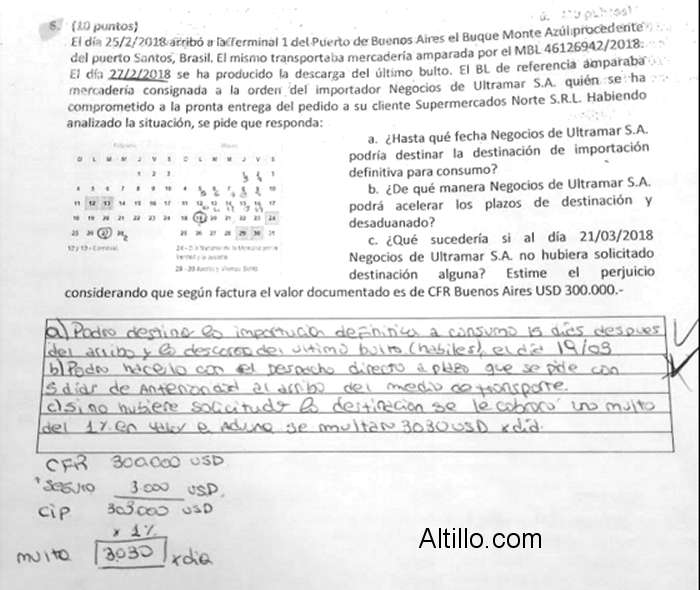 6. (10 puntos)
El día 25/2/2018 arribó a la Terminal 1 del Puerto de Buenos Aires el Buque Monte Azúl procedente
del puerto Santos, Brasil. El mismo transportaba mercadería amparada por el MBL 46126942/2018.
El día 27/2/2018 se ha producido la descarga del último bulto. El BL de referencia amparaba
mercadería consignada a la orden del importador Negocios de Ultramar S.A. quién se ha
comprometido a la pronta entrega del pedido a su cliente Supermercados Norte S.R.L. Habiendo
analizado la situación, se pide que responda:
a. ¿Hasta qué fecha Negocios de Ultramar S.A.
podría destinar la destinación de importación
definitiva para consumo?
b. ¿De qué manera Negocios de Ultramar S.A.
podrá acelerar los plazos de destinación y
desaduanado?
c. ¿Qué sucedería si al día 21/03/2018
Negocios de Ultramar S.A. no hubiera solicitado
destinación alguna? Estime el perjuicio
considerando que según factura el valor documentado es de CFR Buenos Aires USD 300.000.-
D L M M J V S D L M M J V S
12 y 13 - Carnaval
a) Podra destinar la importación definitiva a consumo 15 dias despues
del arribo y la descarga del ultimo bulto (habiles), el dia 19/03
b) Podra hacerlo con el despacho directo a plaza que se pide con
5 dias de anterioridad al arribo del medio de transporte.
c) Si no hubiere solicitude la destinacion se le cobrara una multa
del 1% en valor e aduna se multara 3030 USD x dia.
CFR 300.000 USD
+ seguro 3.000 USD.
CIP 303000 USD
x 1%
multa 3030 x dia
Altillo.com